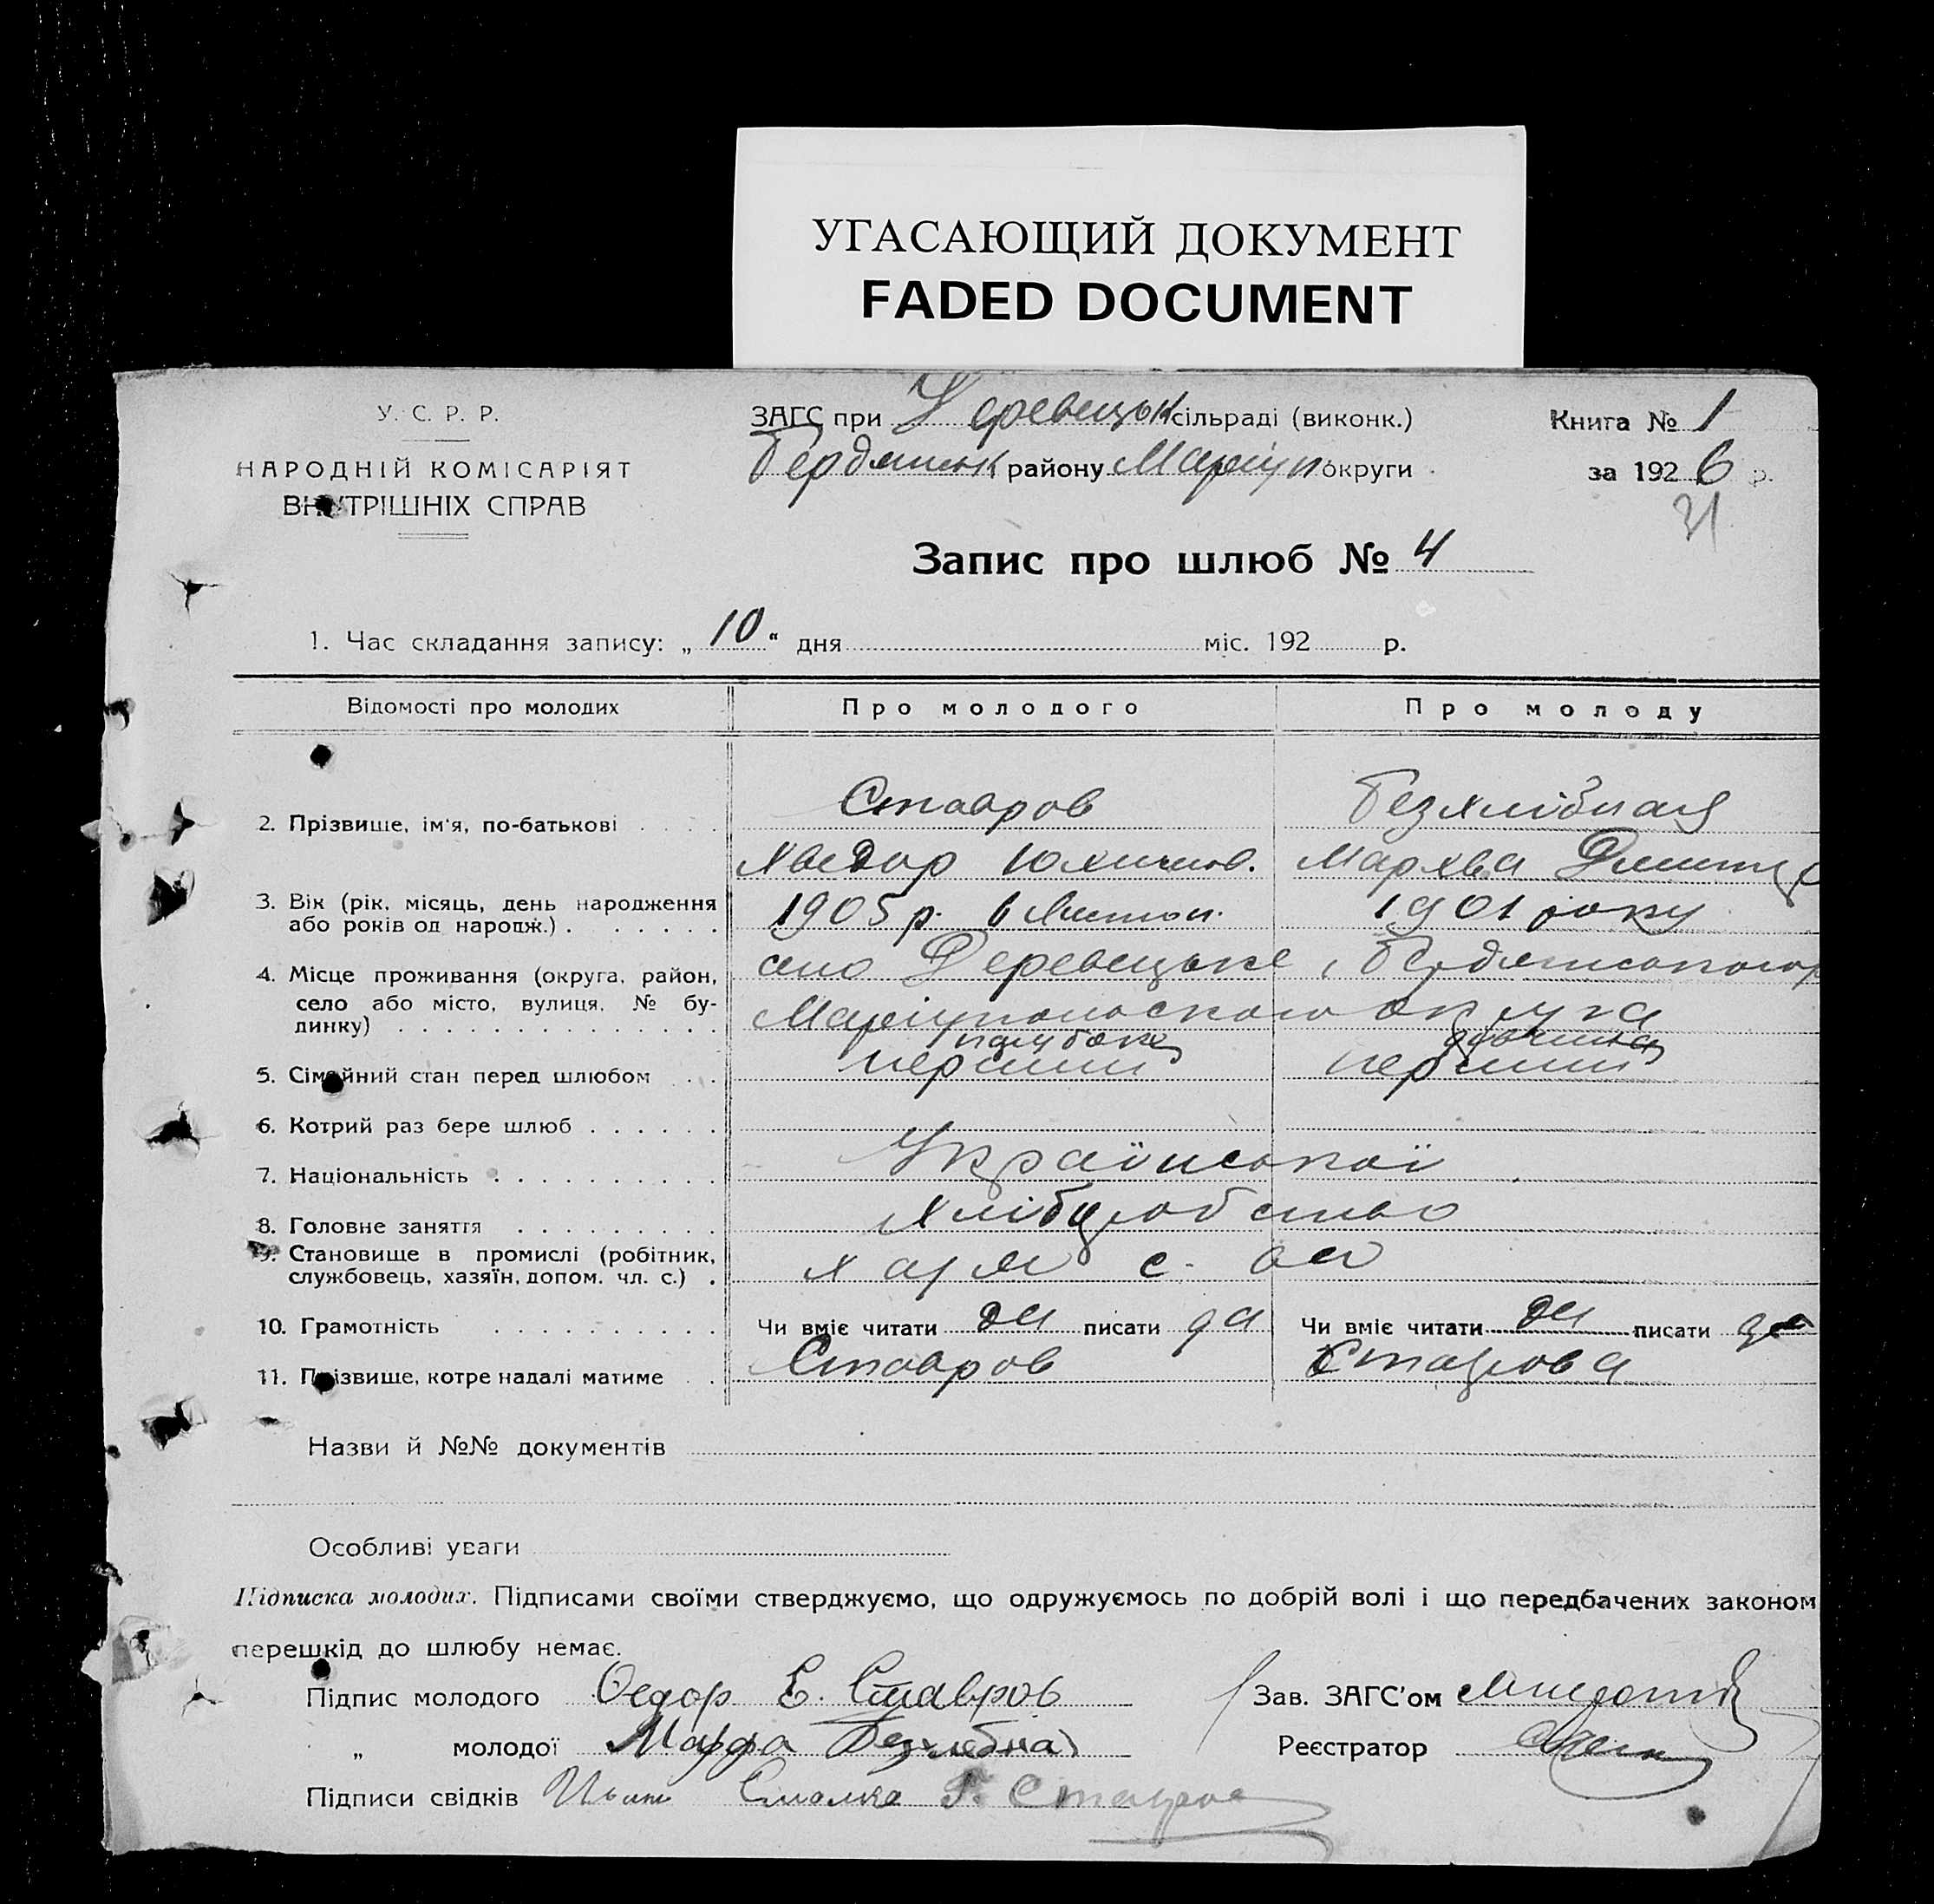 УГАСАЮЩИЙ ДОКУМЕНТ
FADED DOCUMENT
У. С. Р. Р.
НАРОДНІЙ КОМІСАРІЯТ
ВНУТРІШНІХ СПРАВ
ЗАГС при сільраді (виконк.)
Бердянськ району Маріуп округи
Книга № 1
за 1926 р.
31
Запис про шлюб № 4
1. Час складання запису: „ 10 “ дня міс. 192 р.
Відомості про молодих Про молодого Про молоду
2. Прізвище, ім'я, по-батькові . . . . Ставров Безхлібная
Хведор Юхимов. Мархва Дмитр
3. Вік (рік, місяць, день народження або років од народж.) . . . . . . . 1905 р. 6 Листоп. 1901 року
4. Місце проживання (округа, район, село або місто, вулиця, № будинку) . . . . . . . . . . . . . . село Деревецьке, Бердянського р
Маріупольского округа
парубок дівчина
5. Сімейний стан перед шлюбом . . . перший перший
6. Котрий раз бере шлюб . . . . . .
7. Національність . . . . . . . . . . Української
8. Головне заняття . . . . . . . . . Хліборобство
9. Становище в промислі (робітник, службовець, хазяїн, допом. чл. с.) .
10. Грамотність . . . . . . . . . . Чи вміє читати да писати да Чи вміє читати да писати да
11. Прізвище, котре надалі матиме . . Ставров Ставрова
Назви й №№ документів
Особливі уваги
Підписка молодих. Підписами своїми стверджуємо, що одружуємось по добрій волі і що передбачених законом
перешкід до шлюбу немає.
Підпис молодого Федор Е. Ставров Зав. ЗАГС'ом
„ молодої Марфа Безхлебная Реєстратор
Підписи свідків